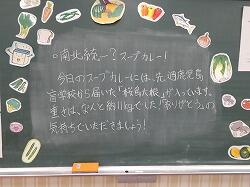 ○南北統一？スープカレー！
今日のスープカレーには、先週鹿児島
盲学校から届いた「桜島大根」が入っています。
重さは、なんと約11kgでした！「ありがとう」の
気持ちでいただきましょう！